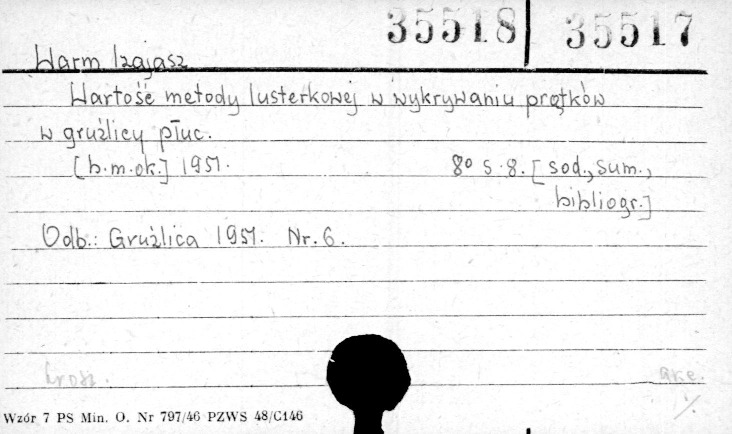 35518 35517
Warm Izajasz
Wartość metody lusterkowej w wykrywaniu prątków
w gruźlicy płuc.
[b.m.ok.] 1951. 8º s. 8. [sod., sum.,
bibliogr.]
Odb.: Gruźlica 1951. Nr. 6.
brosz. ake.
Wzór 7 PS Min. O. Nr 797/46 PZWS 48/C146